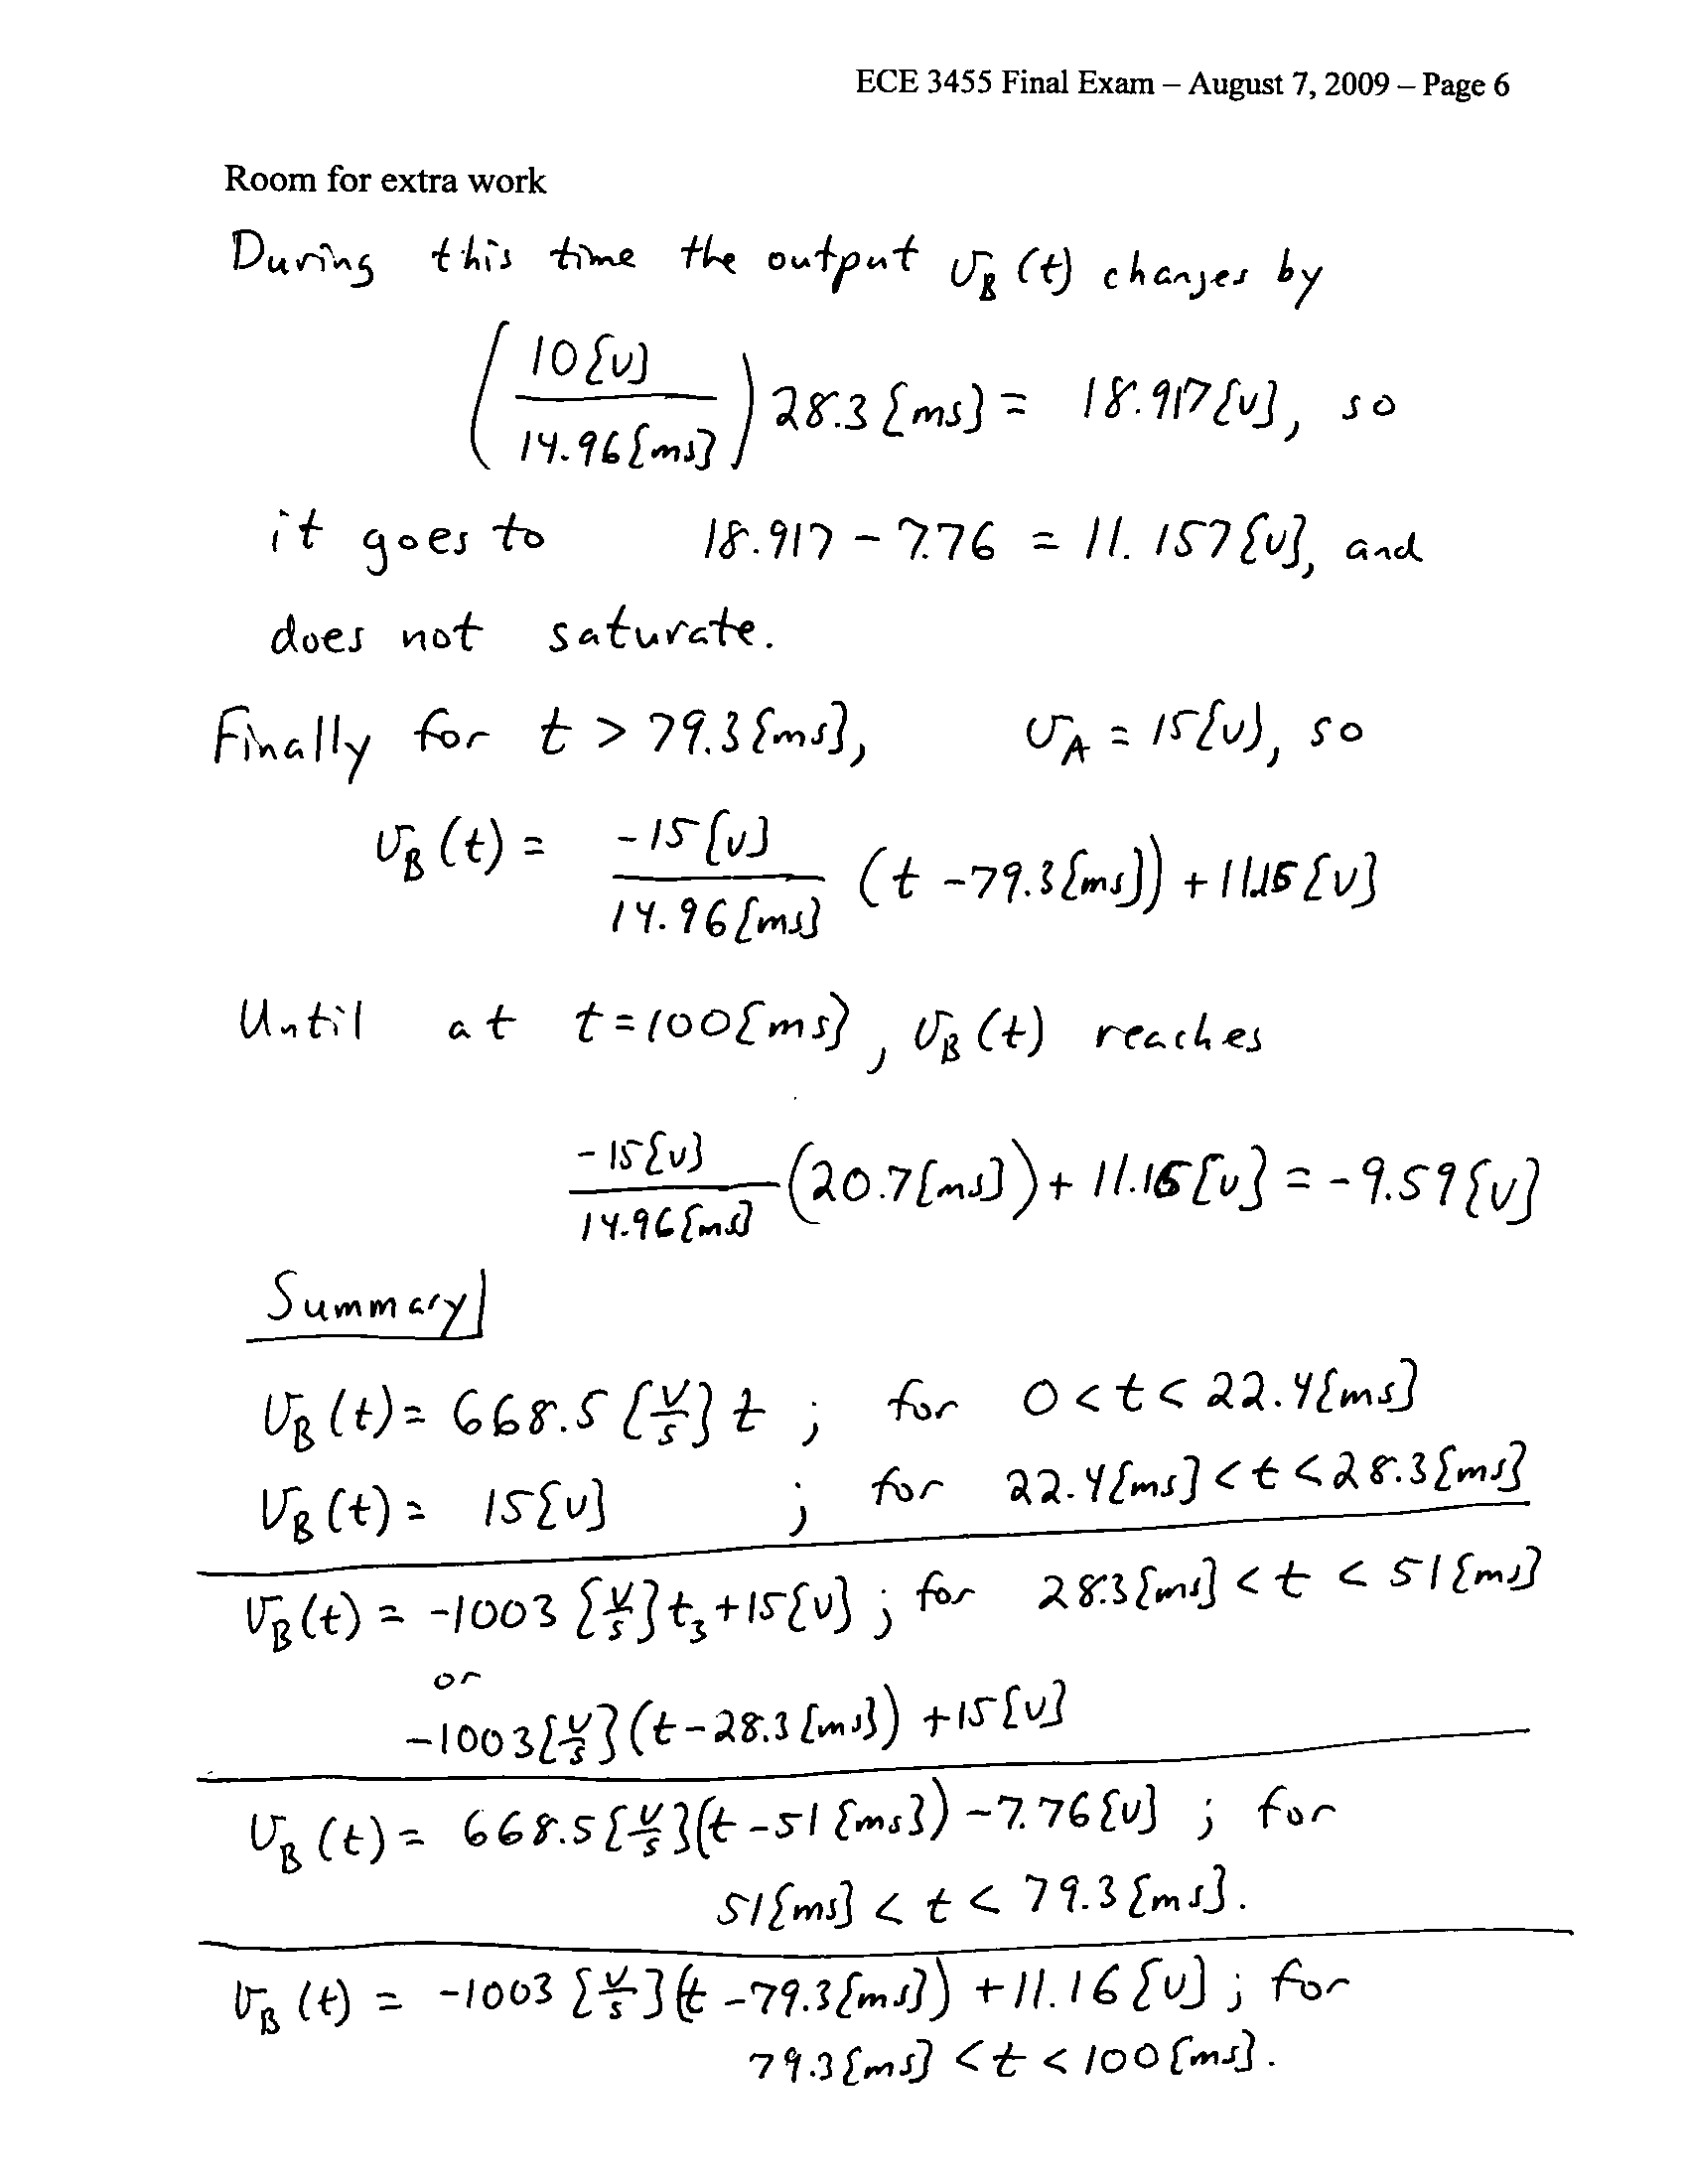 ECE 3455 Final Exam – August 7, 2009 – Page 6
Room for extra work
During this time the output v_B(t) changes by
(10{v} / 14.96{ms}) 28.3{ms} = 18.917{v}, so
it goes to 18.917 - 7.76 = 11.157{v}, and
does not saturate.
Finally for t > 79.3{ms}, v_A = 15{v}, so
v_B(t) = -15{v} / 14.96{ms} (t - 79.3{ms}) + 11.16{v}
Until at t = 100{ms}, v_B(t) reaches
-15{v} / 14.96{ms} (20.7{ms}) + 11.16{v} = -9.59{v}
Summary
v_B(t) = 668.5{v/s} t ; for 0 < t < 22.4{ms}
v_B(t) = 15{v} ; for 22.4{ms} < t < 28.3{ms}
v_B(t) = -1003{v/s} t_3 + 15{v} ; for 28.3{ms} < t < 51{ms}
or
-1003{v/s}(t - 28.3{ms}) + 15{v}
v_B(t) = 668.5{v/s}(t - 51{ms}) - 7.76{v} ; for
51{ms} < t < 79.3{ms}.
v_B(t) = -1003{v/s}(t - 79.3{ms}) + 11.16{v} ; for
79.3{ms} < t < 100{ms}.